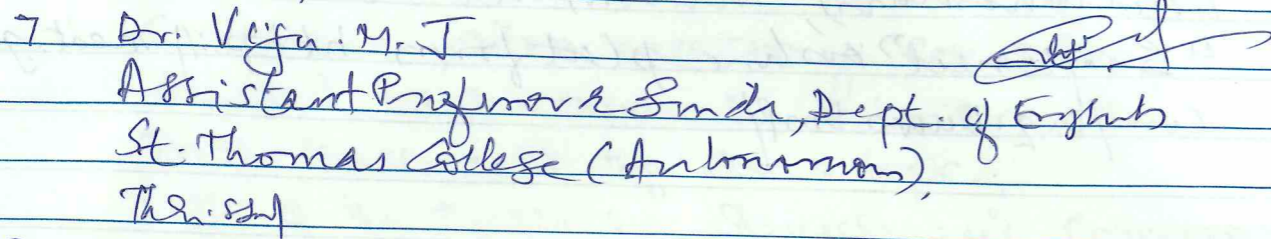 7 Dr. Viju. M. J
Assistant Professor & Dept. of English
St. Thomas College (Autonomous),
Thrissur